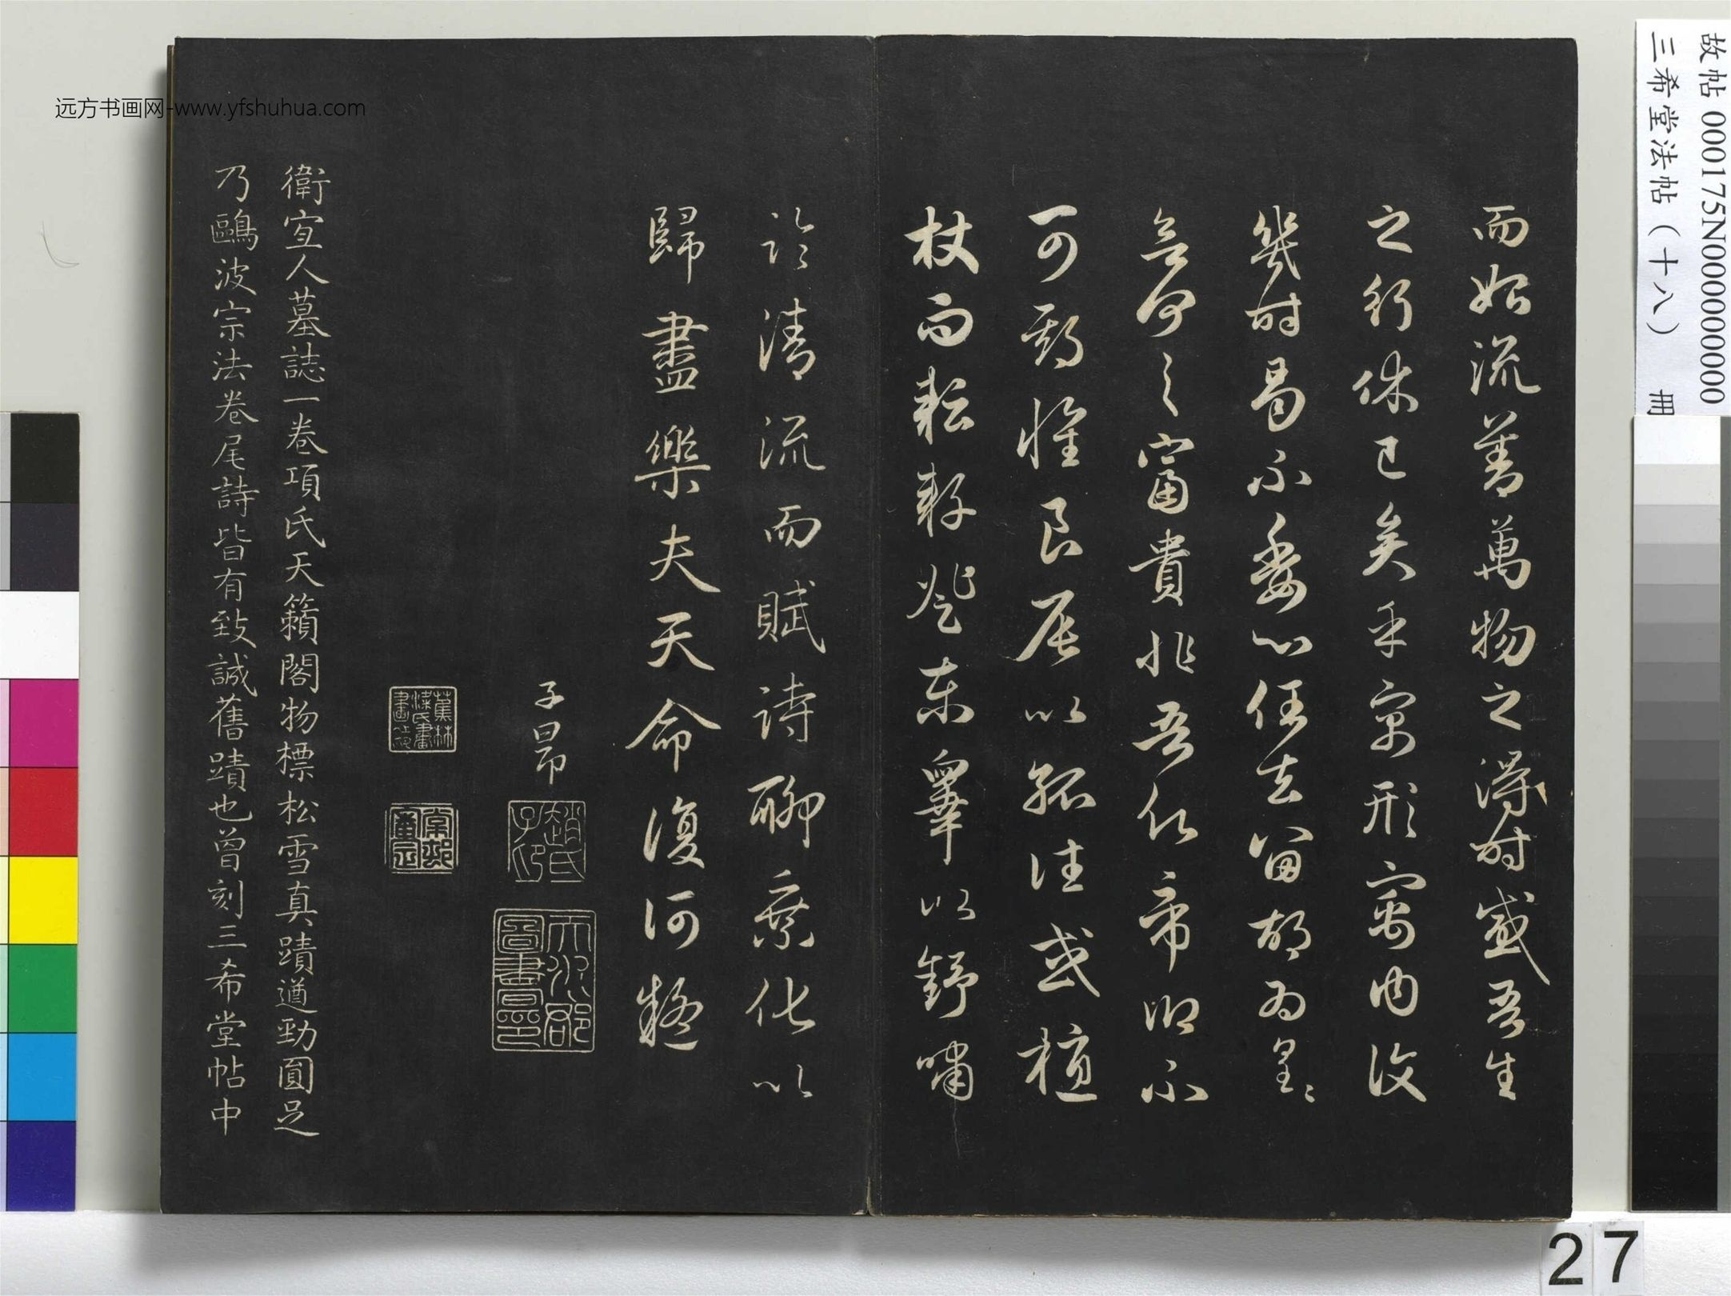 故帖 000175N000000000
三希堂法帖（十八） 冊
远方书画网-www.yfshuhua.com
而始流善萬物之得時感吾生
之行休已矣乎寓形寓内復
幾時曷不委心任去留胡為皇〻
何之富貴非吾願帝鄉不
可期懷良辰以孤往或植
杖而耘耔登東皋以舒嘯
臨清流而賦詩聊乘化以
歸盡樂夫天命復何疑
子昂
趙氏子昂
天水郡圖書印
蕉林梁氏書畫之印
棠邨審定
衛宜人墓誌一卷項氏天籟閣物標松雪真蹟遒勁圓足
乃鷗波宗法卷尾詩皆有致誠舊蹟也曾刻三希堂帖中
27